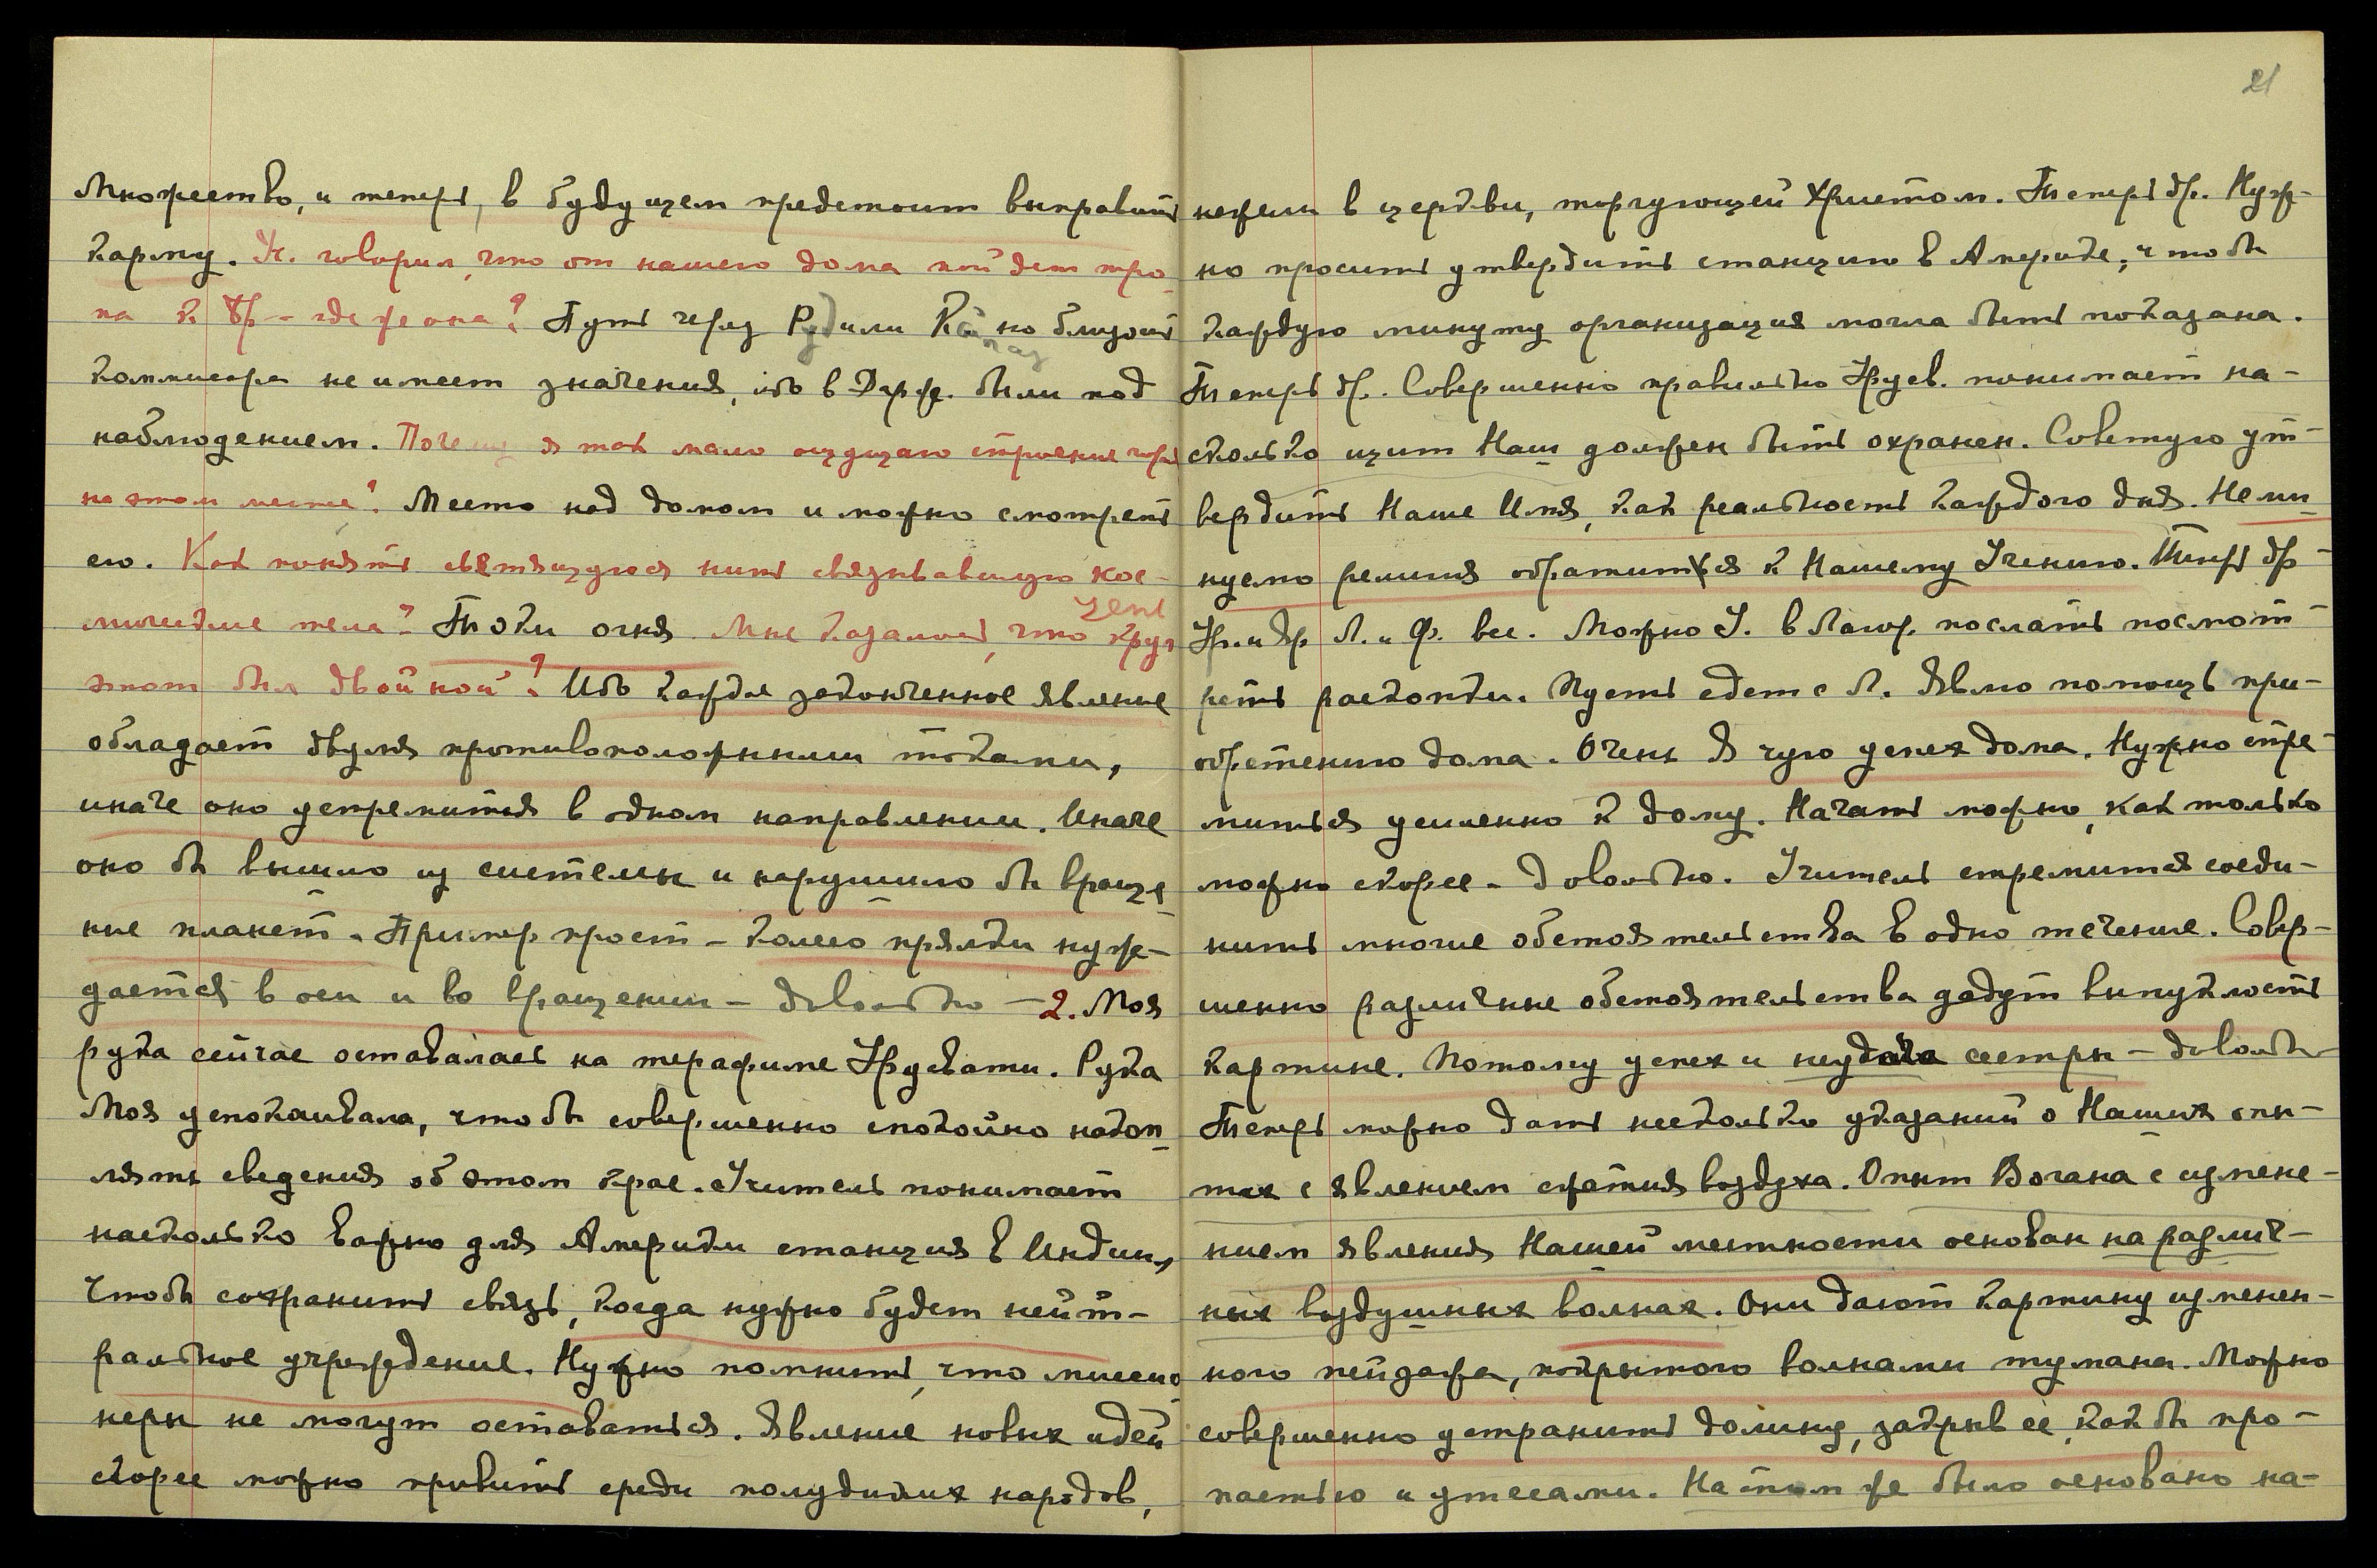 Множество, и теперь, в будущем предстоит выправить
карму. Уч. говорил, что от нашего дома пойдет тро-
па к Бр – где же она? Путь через Рудили но близость
комиссара не имеет значения, ибо в Дардж. были под
наблюдением. Почему я так мало ощущаю строение через
на этом месте? Место над домом и можно смотреть
его. Как понять светящуюся нить связывавшую кос-
мические тела? Токи огня. Мне казалось, что круг
центр
этот был двойной? Ибо каждое законченное явление
обладает двумя противоположными токами,
иначе оно устремится в одном направлении. Иначе
оно бы вышло из системы и нарушило бы враще-
ние планет. Пример прост – колесо прялки нуж-
дается в оси и во вращении – довольно – 2. Моя
рука сейчас оставалась на терафиме Урусвати. Рука
Моя успокаивала, чтобы совершенно спокойно накоп-
лять сведения об этом крае. Учитель понимает
насколько важно для Америки станция в Индии,
чтобы сохранить связь, когда нужно будет нейт-
ральное учреждение. Нужно помнить, что миссио-
неры не могут оставаться. Явление новых идей
скорее можно привить среди полудиких народов,
21
нежели в церкви, торгующей Христом. Теперь др. Нуж-
но просить утвердить станцию в Америке, чтобы
каждую минуту организация могла быть показана.
Теперь др. Совершенно правильно Урусв. понимает на-
сколько щит Наш должен быть охранен. Советую ут-
вердить Наше Имя, как реальность каждого дня. Неми-
нуемо религия обратиться к Нашему Учению. Теперь др –
Ур. и др Л. и Ф. все. Можно У. в Лагор. послать посмот-
реть раскопки. Пусть едет с Л. Явлю помощь при-
обретению дома. Очень Я чую успех дома. Нужно стре-
миться усиленно к дому. Начать можно, как только
можно скорее – довольно. Учитель стремится соеди-
нить многие обстоятельства в одно течение. Совер-
шенно различные обстоятельства дадут выпуклость
картине. Потому успех и неудача сестры – довольно
Теперь можно дать несколько указаний о Наших опы-
тах с явлением сжатия воздуха. Опыт Вогана с измене-
нием явления Нашей местности основан на различ-
ных воздушных волнах. Они дают картину изменен-
ного пейзажа, покрытого волнами тумана. Можно
совершенно устранить долину, закрыв ее, как бы про-
пастью и утесами. На том же было основано на-